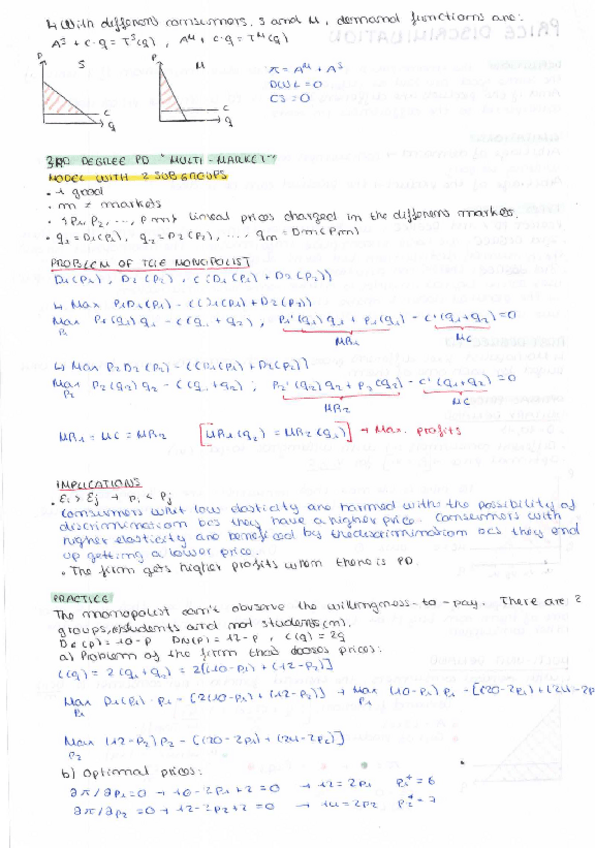 ↳ With different consumers, S and M, demand functions are:
Aˢ + c·q = Tˢ(q) , Aᴹ + c·q = Tᴹ(q)
P S P M π = Aᴹ + Aˢ
DWL = 0
CS = 0
c c
q q
3RD DEGREE PD "MULTI-MARKET"
MODEL WITH 2 SUBGROUPS
· 1 good
· m ≠ markets
· {p1, p2, ..., pm} lineal prices charged in the different markets.
· q1 = D1(p1), q2 = D2(p2), ..., qm = Dm(pm)
PROBLEM OF THE MONOPOLIST
D1(p1), D2(p2), C(D1(p1) + D2(p2))
↳ Max p1D1(p1) - C(D1(p1) + D2(p2))
Max P1(q1)q1 - C(q1+q2) , P1'(q1)q1 + P1(q1) - C'(q1+q2) = 0
P1 MR1 MC
↳ Max P2D2(p2) - C(D1(p1) + D2(p2))
Max P2(q2)q2 - C(q1+q2) ; P2'(q2)q2 + P2(q2) - C'(q1+q2) = 0
P2 MR2 MC
MR1 = MC = MR2 [MR1(q1) = MR2(q2)] → Max. profits
IMPLICATIONS
· εi > εj → pi < pj
Consumers whit low elasticity are harmed with the possibility of
discrimination bcs they have a higher price. Consumers with
higher elasticity are beneficed by the discrimination bcs they end
up getting a lower price.
· The firm gets higher profits when there is PD
PRACTICE
The monopolist can't observe the willingness-to-pay. There are 2
groups, students and not students(m).
(p) = 10-p DN(p) = 12-p , C(q) = 2q
a) Problem of the firm that chooses prices:
C(q) = 2(q1+q2) = 2[(10-p1) + (12-p2)]
Max D1(p1)·p1 - [2(10-p1) + (12-p2)] → Max (10-p1)p1 - [(20-2p1) + (24-2p
P1 P1
Max (12-p2)p2 - [(20-2p1) + (24-2p2)]
P2
b) Optimal prices:
∂π/∂p1=0 → 10-2p1+2 = 0 → 12 = 2p1 p1* = 6
∂π/∂p2 = 0 → 12-2p2+2 = 0 → 14 = 2p2 p2* = 7